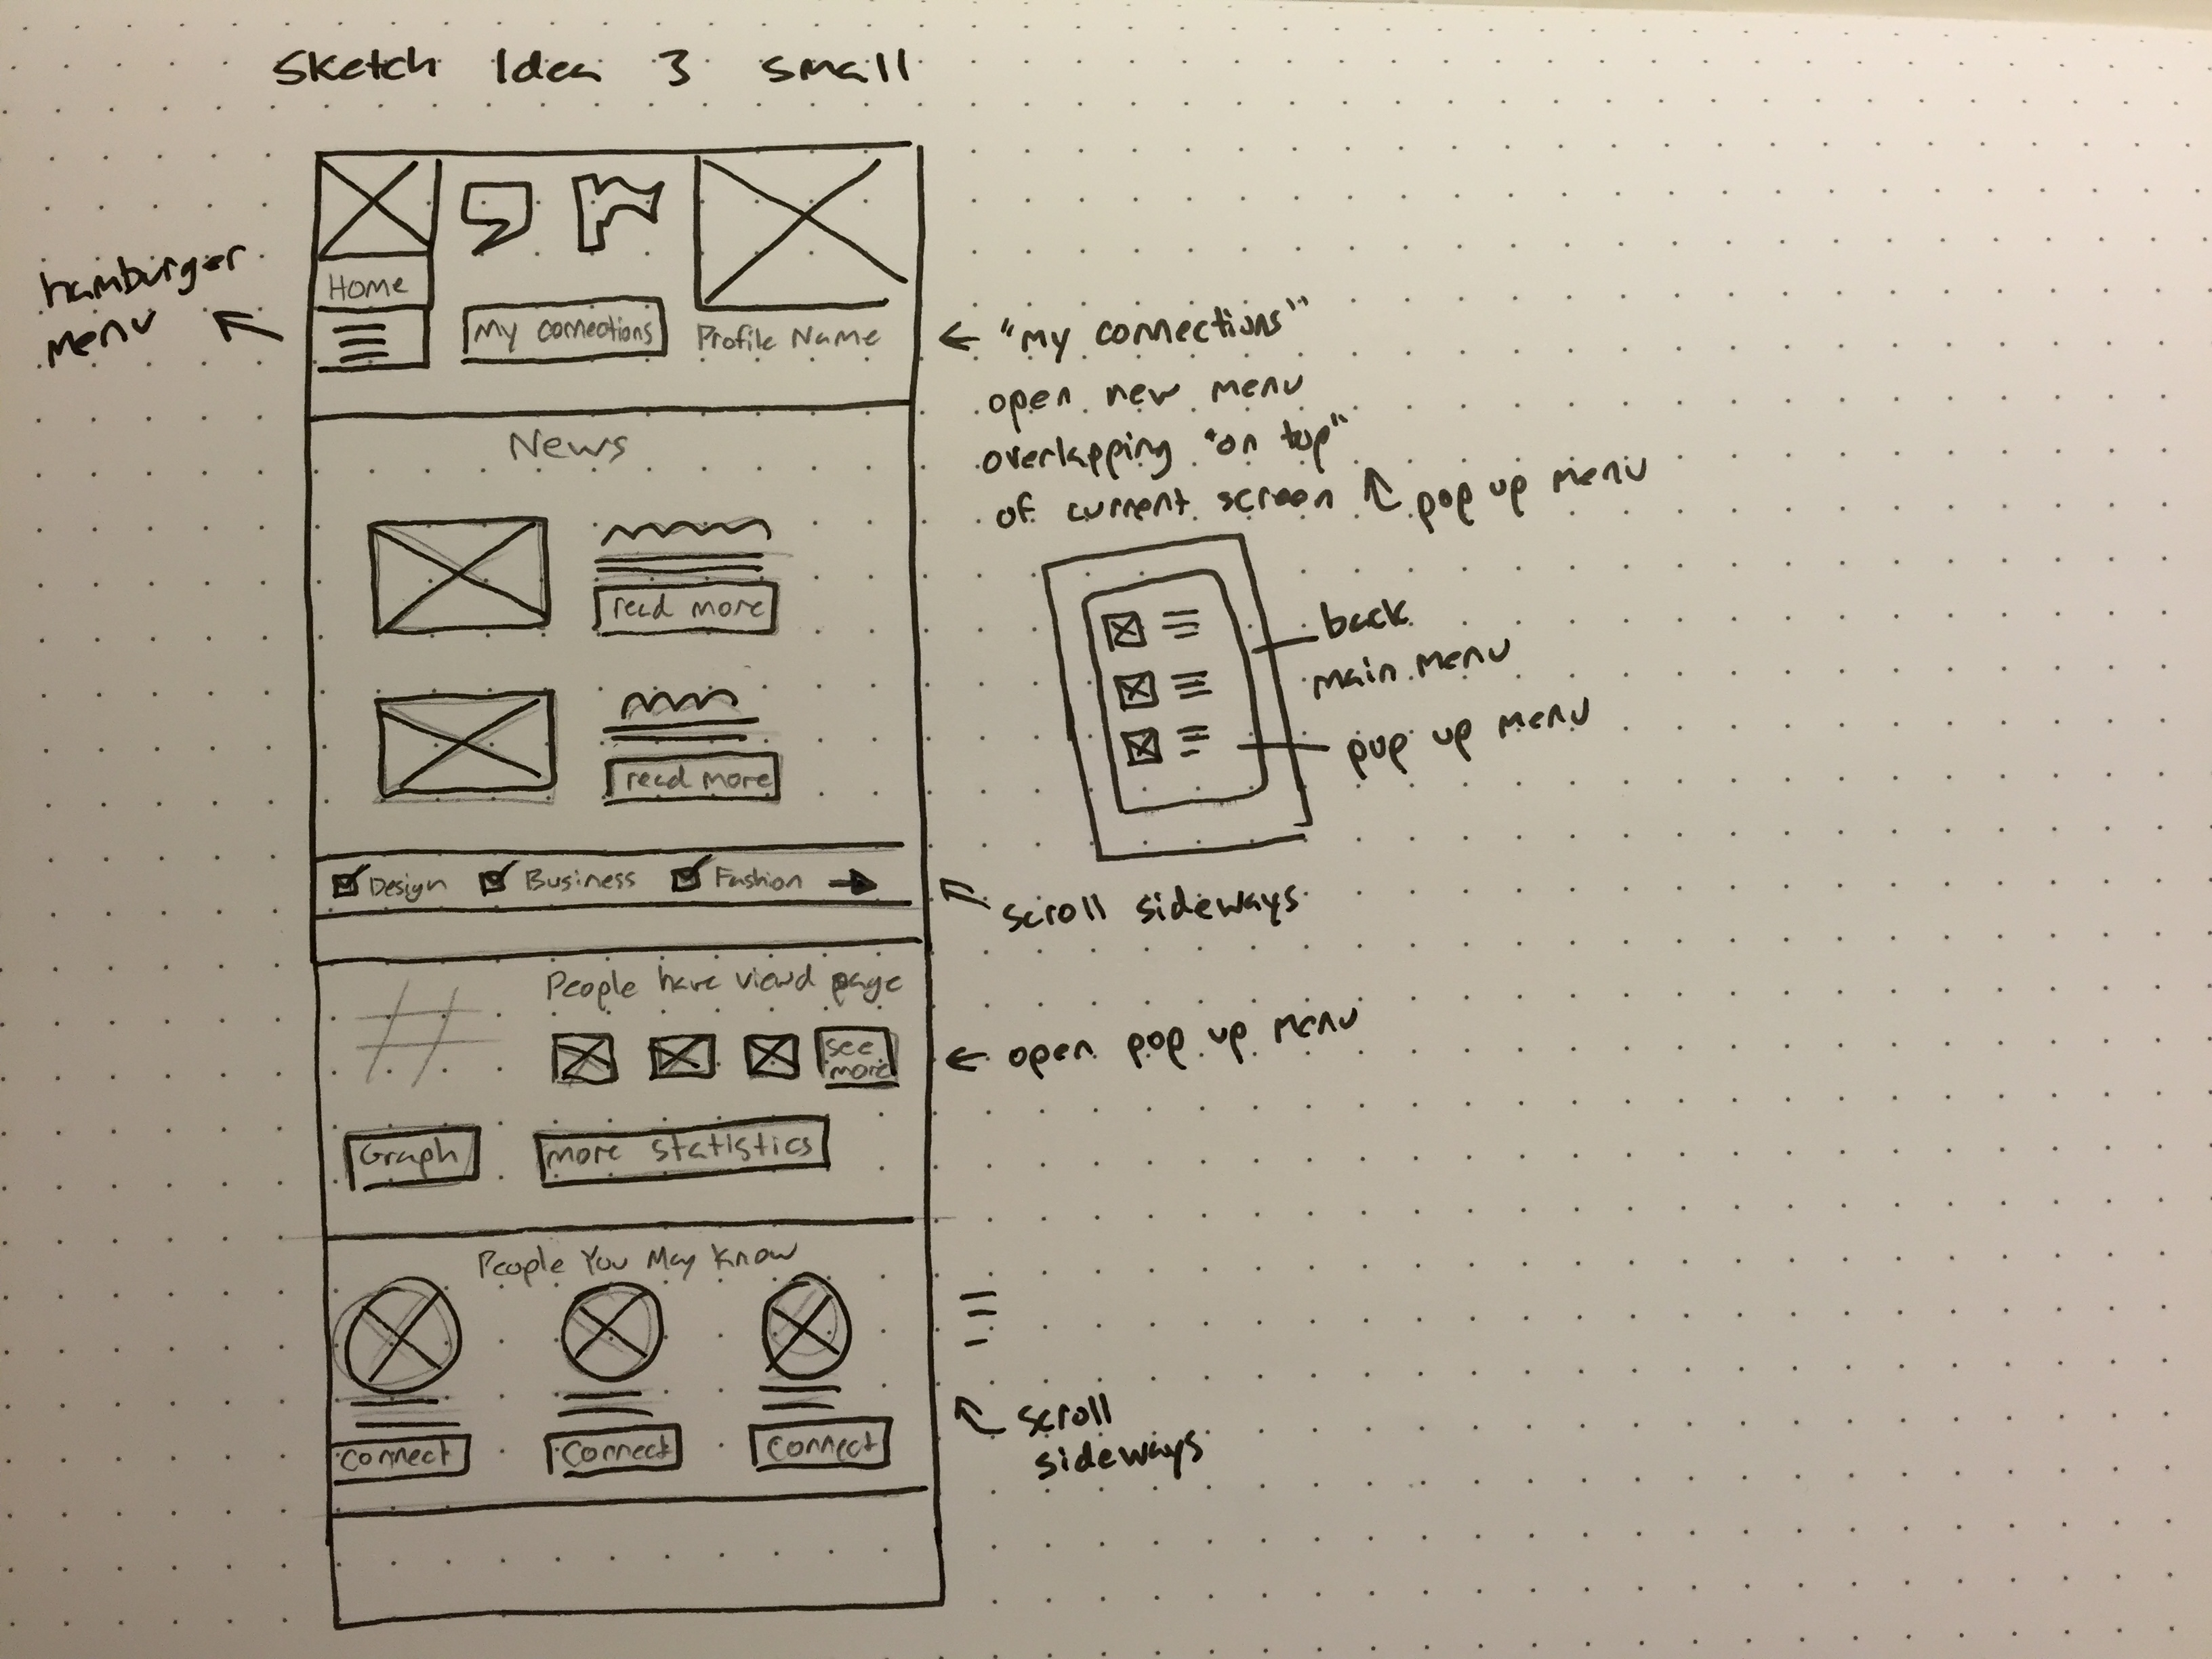 Sketch Idea 3 small
hamburger
menu
Home
My connections
Profile Name
"my connections"
open new menu
overlapping "on top"
of current screen
pop up menu
News
read more
read more
back
main menu
pop up menu
Design Business Fashion
scroll sideways
People have viewd page
#
see
more
open pop up menu
Graph
more statistics
People You May Know
Connect
Connect
Connect
scroll
sideways